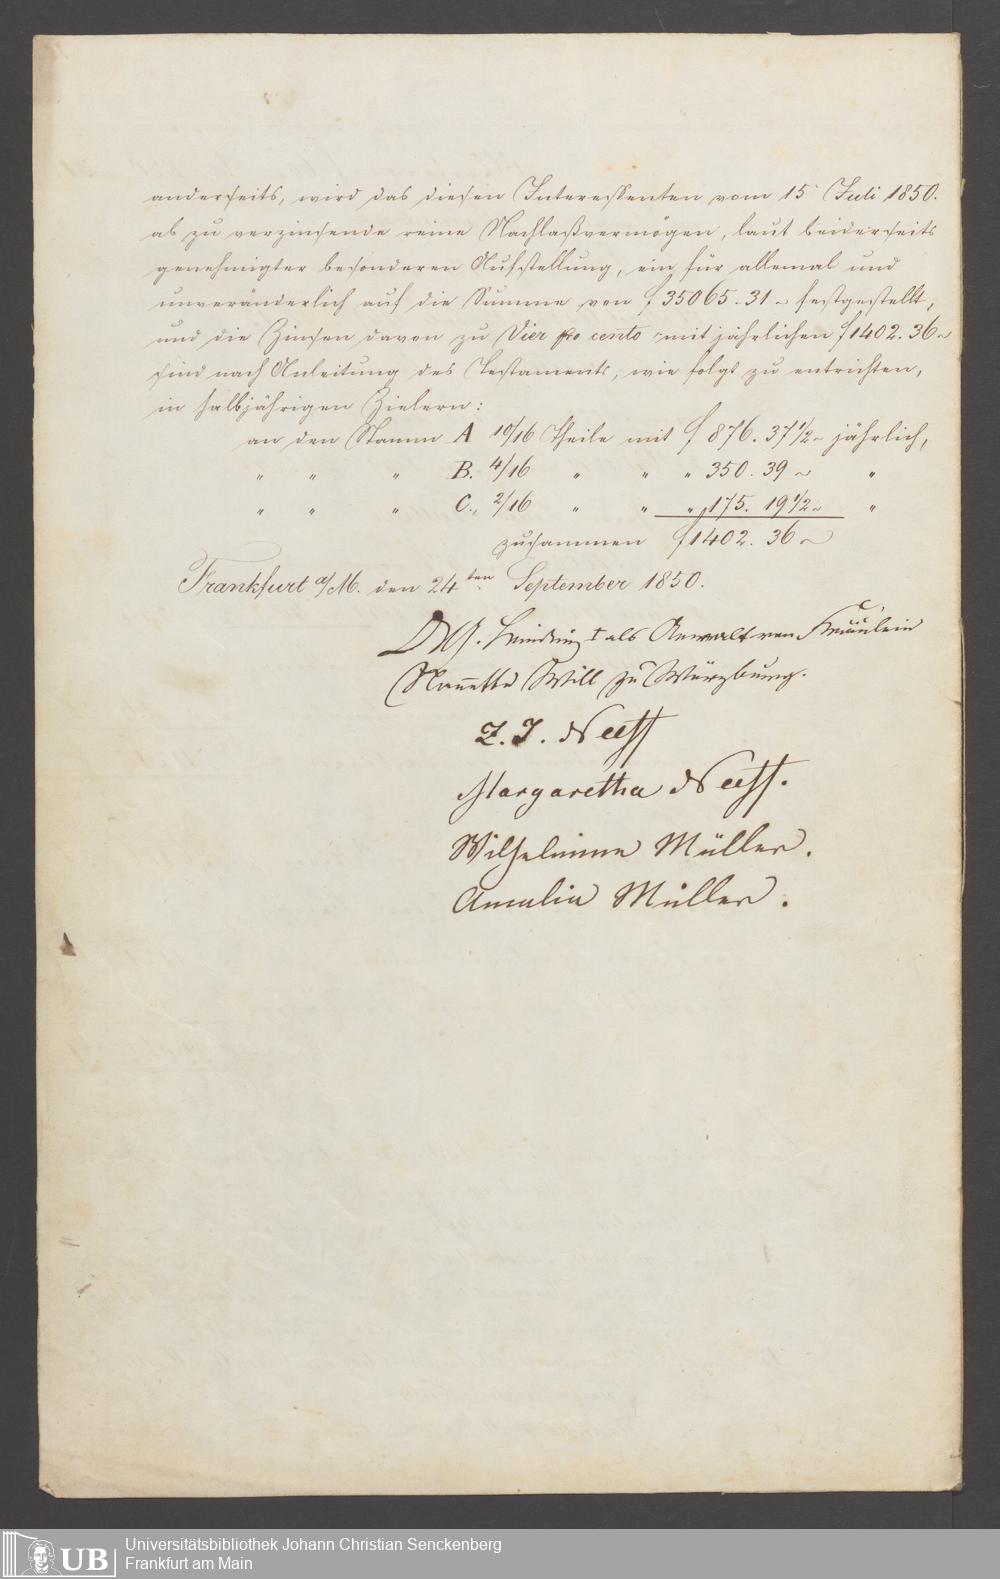 anderseits, wird das diesen Interessenten vom 15 Juli 1850.
ab zu verzinsende reine Nachlaßvermögen, laut beiderseits
genehmigter besonderen Aufstellung, ein für allemal und
unveränderlich auf die Summe von f 35065. 31 festgestellt,
und die Zinsen davon zu Vier pro cento mit jährlichen f 1402. 36
sind nach Anleitung des Testaments, wie folgt zu entrichten,
in halbjährigen Zielern:
an den Stamm A 10/16 Theile mit f 876. 37 1/2 jährlich,
" " " B. 4/16 " " " 350. 39 "
" " " C., 2/16 " " " 175. 19 1/2 "
zusammen f 1402. 36
Frankfurt a/M. den 24ten September 1850.
als Anwalt von Fräulein
Nanette Will zu Würzburg.
Z. J. Neeff
Margaretha Neeff.
Wilhelmine Müller.
Amalia Müller.
UB
Universitätsbibliothek Johann Christian Senckenberg
Frankfurt am Main